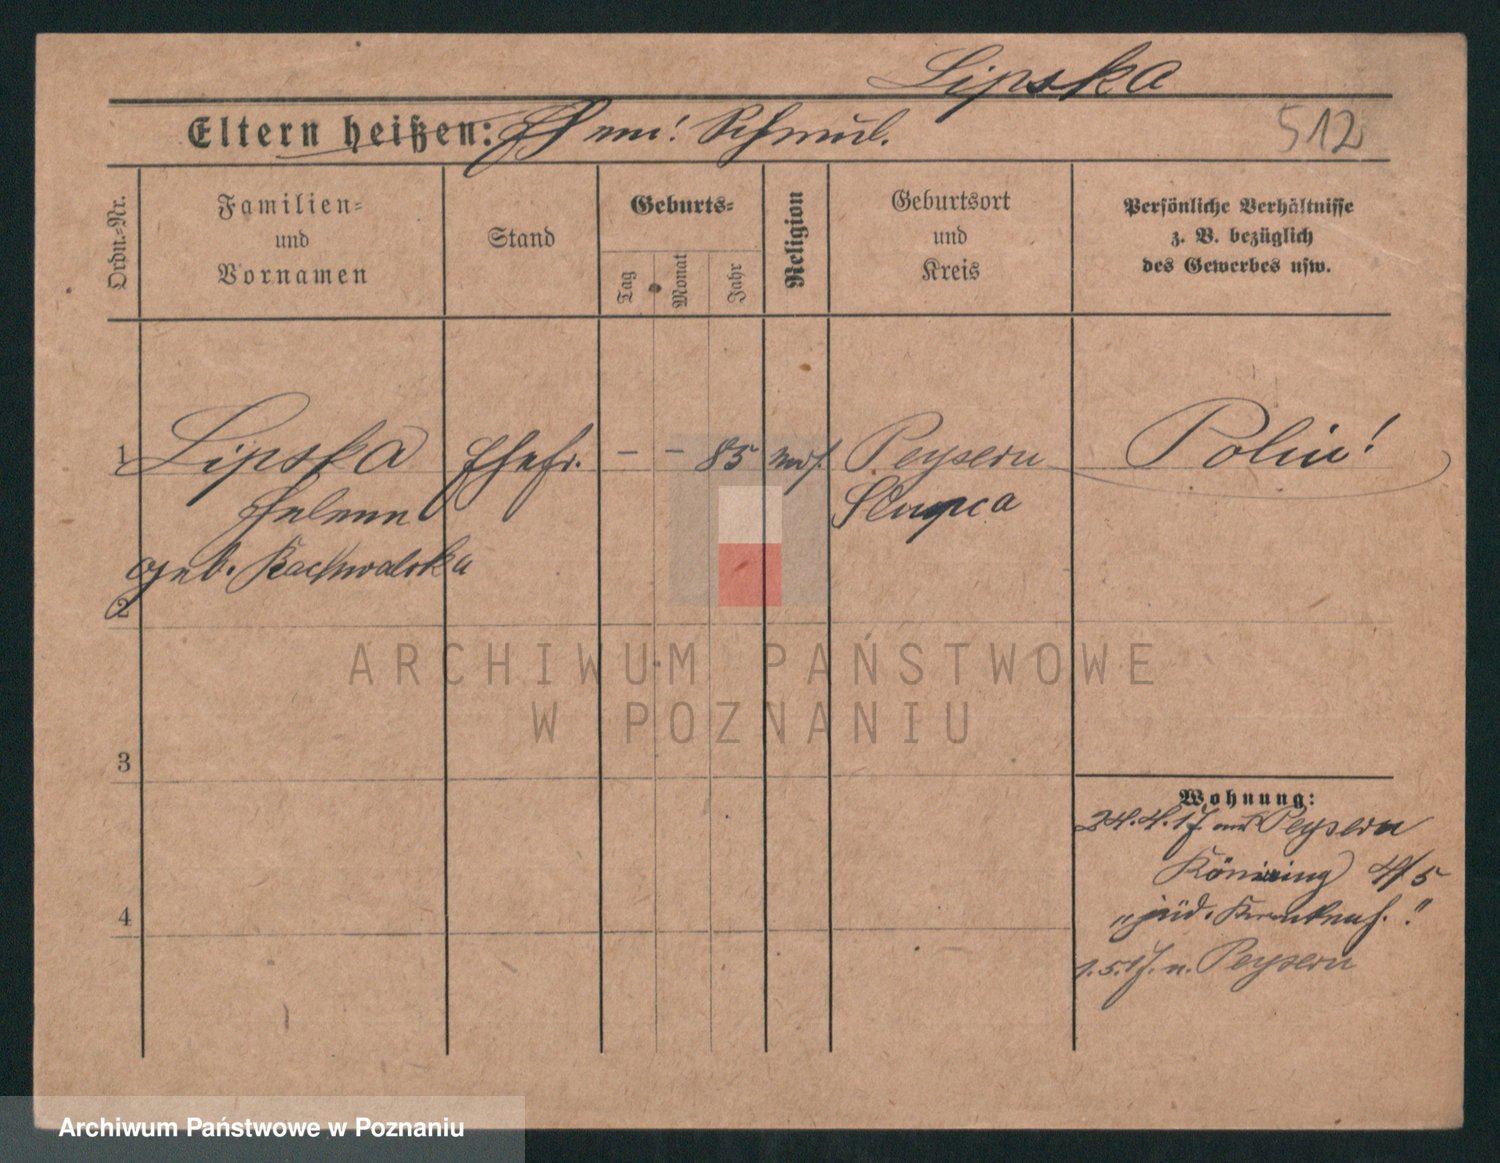 Lipska
Eltern heißen: Ehem: Schmul.
512
Ordn.-Nr.
Familien-
und
Vornamen
Stand
Geburts-
Tag
Monat
Jahr
Religion
Geburtsort
und
Kreis
Persönliche Verhältnisse
z. B. bezüglich
des Gewerbes usw.
1 Lipska Ehefr. - - 85 mos. Peysern Polin!
Helene Slupca
geb.
2
ARCHIWUM PAŃSTWOWE
W POZNANIU
3
4
Wohnung:
24.4.17. aus Peysern
Königring 4/5
"jüd. Krankenh."
1.5.17. n. Peysern
Archiwum Państwowe w Poznaniu